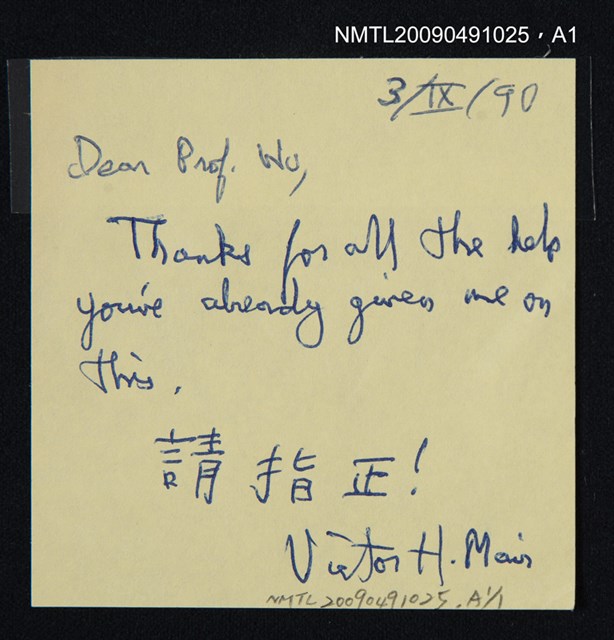 NMTL20090491025，A1
3/IX/90
Dear Prof. Wu,
Thanks for all the help
you've already given me on
this.
請指正！
Victor H. Mair
NMTL20090491025.A1/1